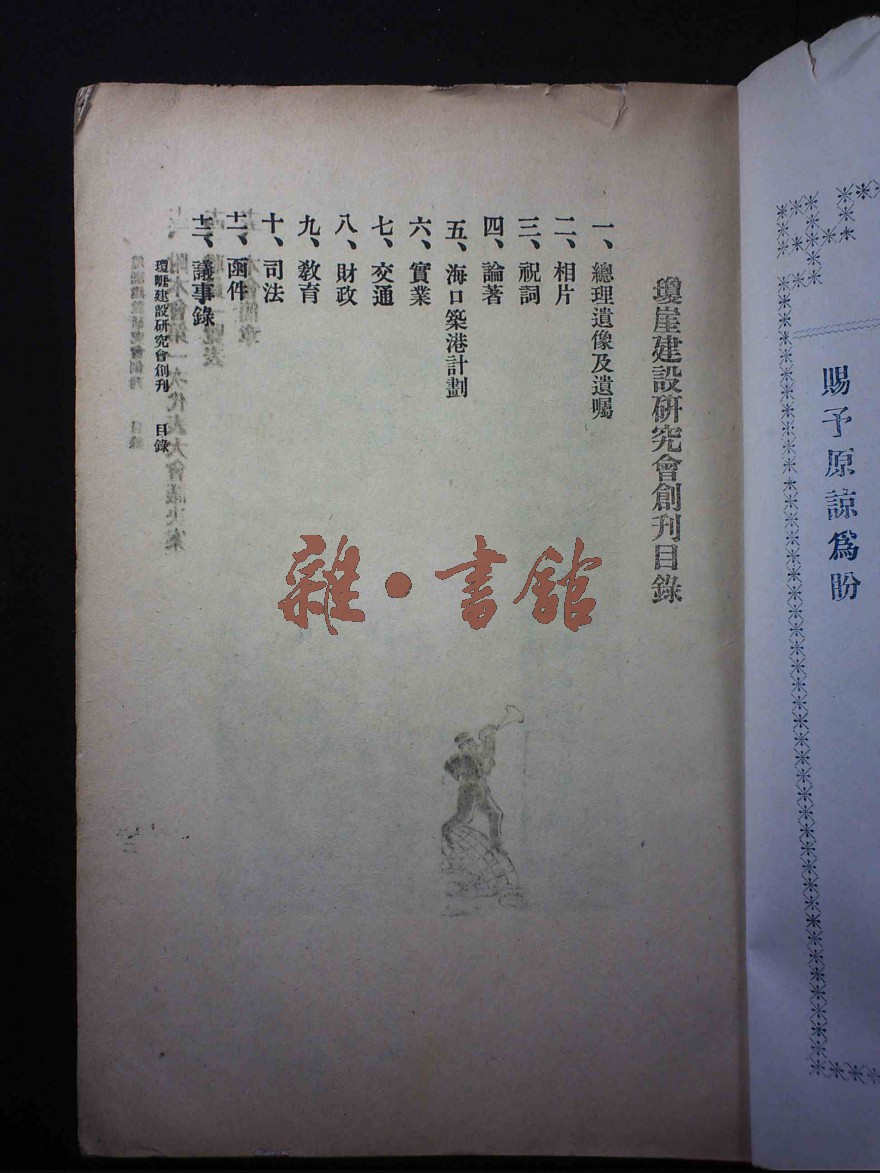 賜予原諒爲盼
瓊崖建設研究會創刊目錄
一、總理遺像及遺囑
二、相片
三、祝詞
四、論著
五、海口築港計劃
六、實業
七、交通
八、財政
九、敎育
十、司法
十一、函件
十二、議事錄
瓊崖建設研究會創刊 目錄
雜·書館